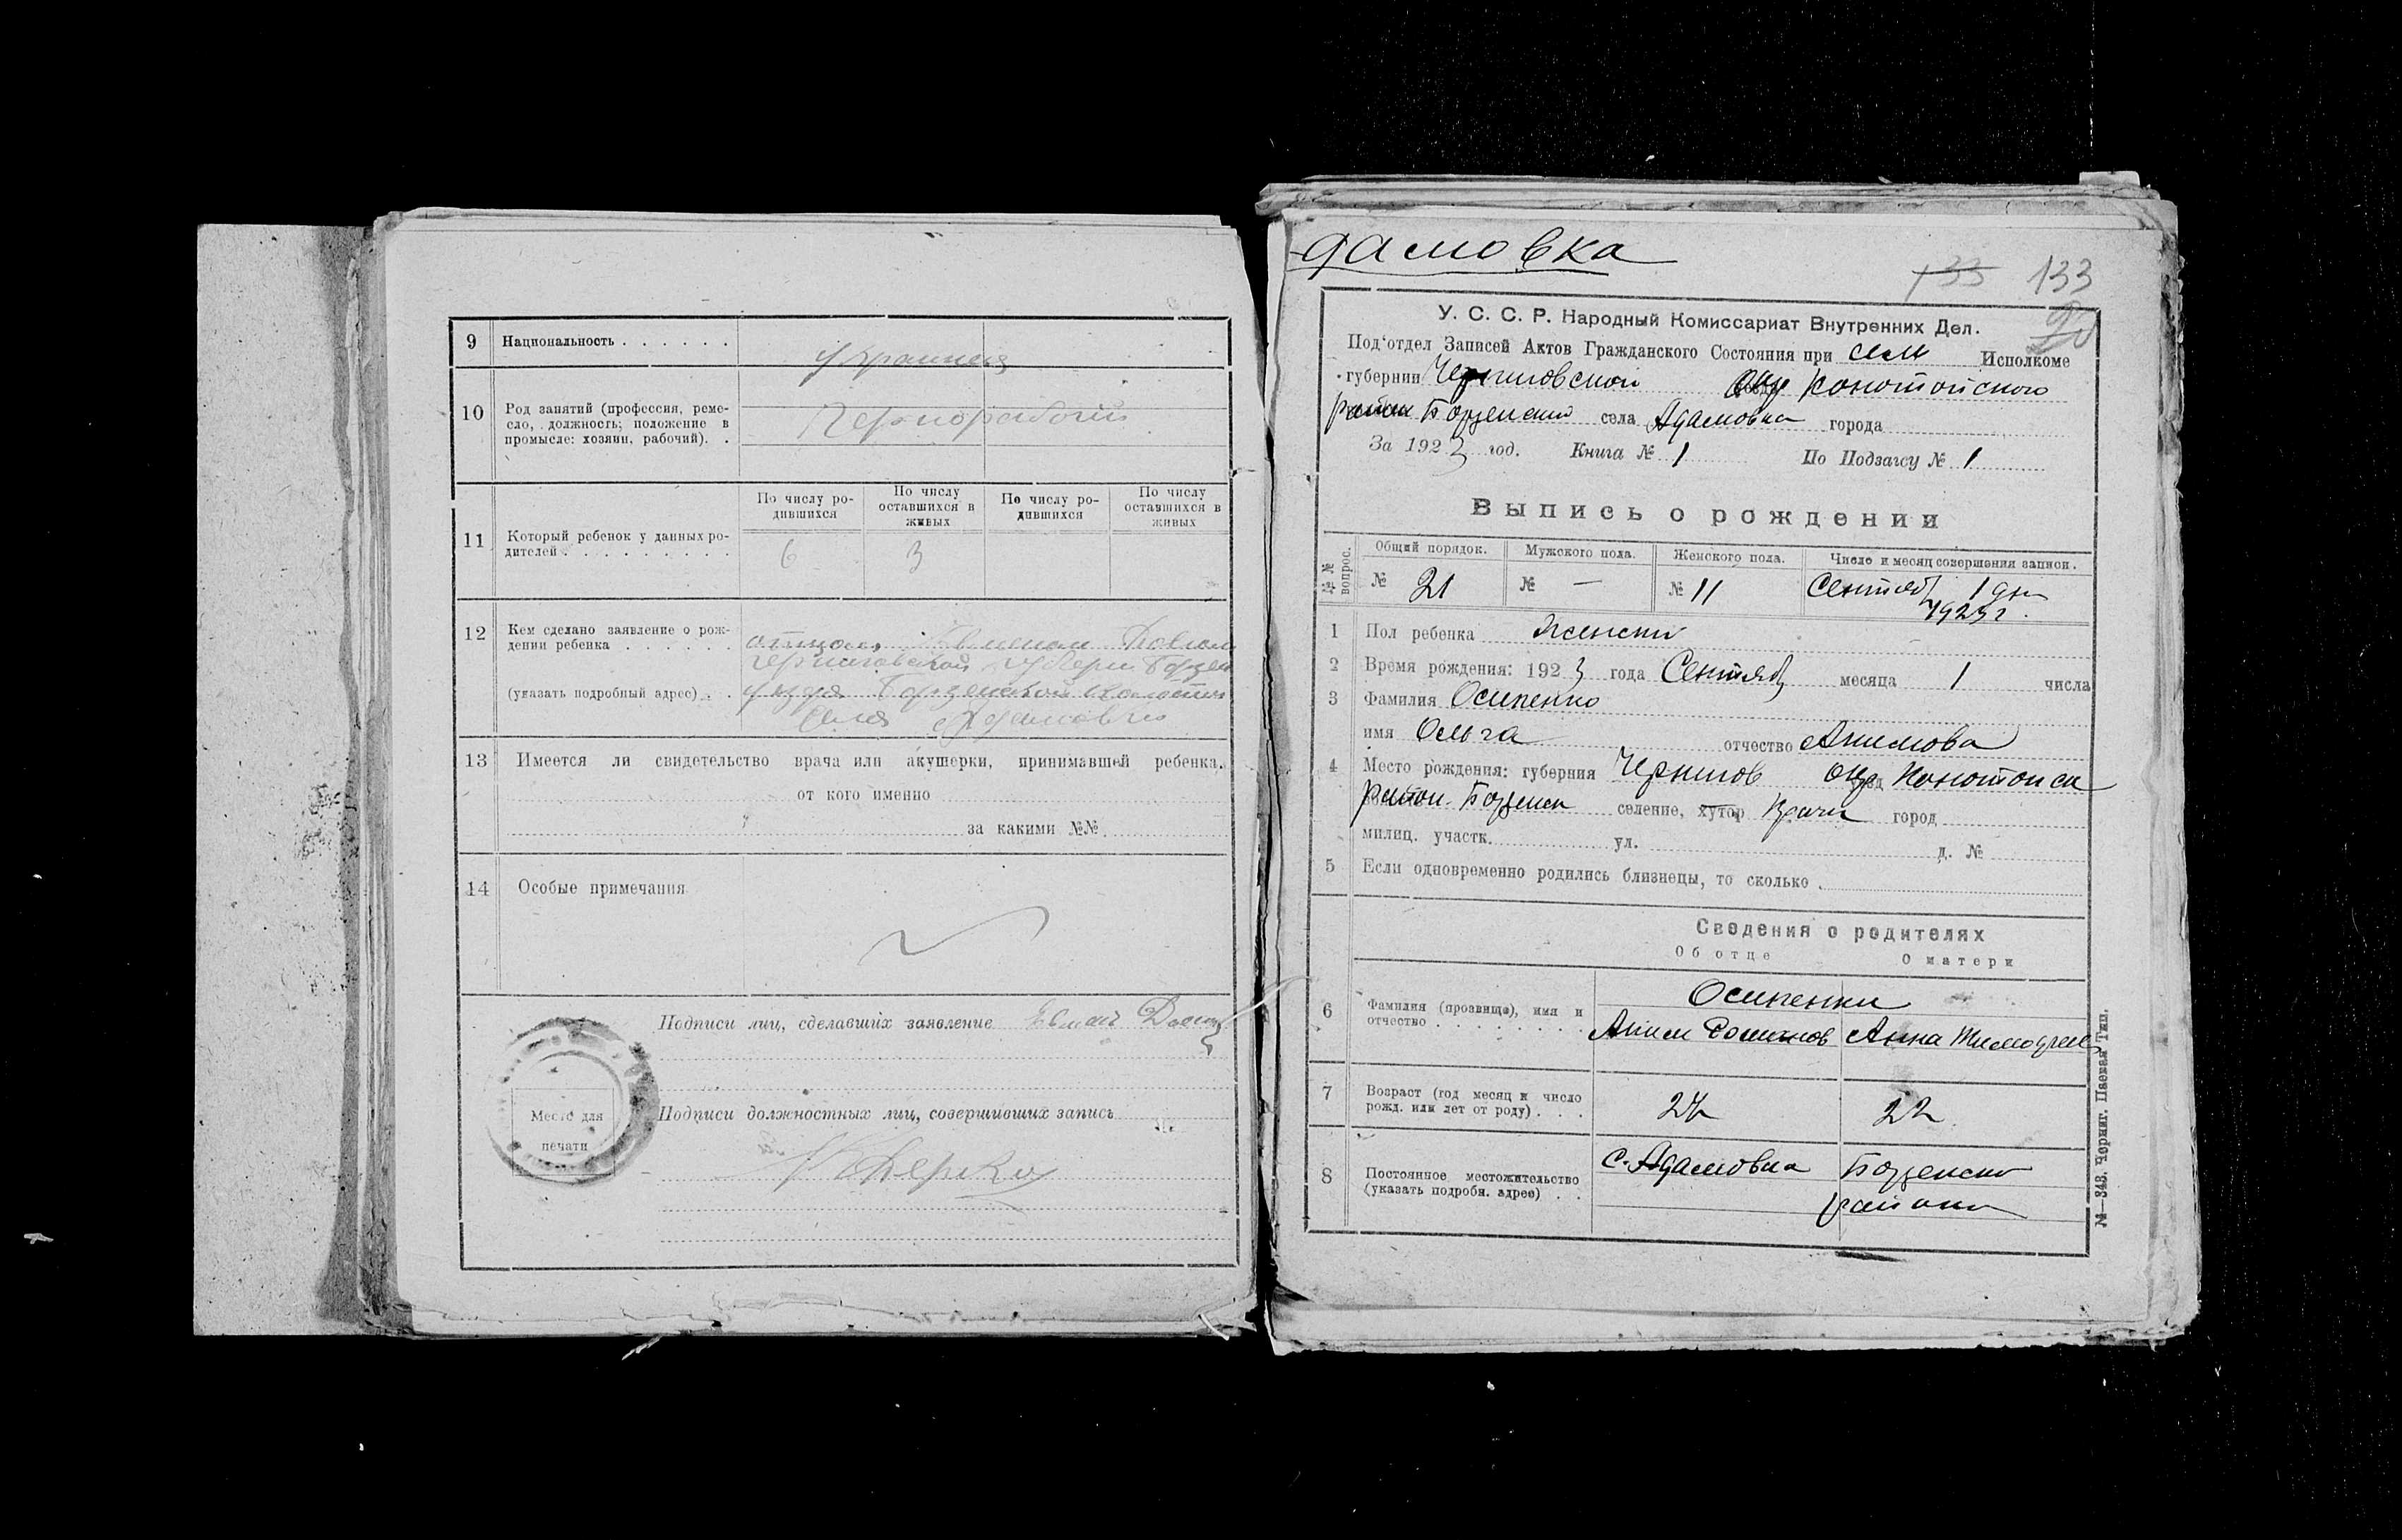 9 Национальность . . . . . .
украинец
10 Род занятий (профессия, реме-
сло, должность; положение в
промысле: хозяин, рабочий). .
Чернорабочий
11 Который ребенок у данных ро-
дителей . . . . . . . . .
По числу ро-
дившихся
По числу
оставшихся в
живых
По числу ро-
дившихся
По числу
оставшихся в
живых
6 3
12 Кем сделано заявление о рож-
дении ребенка . . . . . .
(указать подробный адрес) . .
отцом
черниговской губерни Борзен
уезда Борзенской волости
села Адамовки
13 Имеется ли свидетельство врача или акушерки, принимавшей ребенка.
от кого именно
за какими №№
14 Особые примечания
Подписи лиц, сделавших заявление
Место для
печати
Подписи должностных лиц, совершивших запись
дамовка
133 133
У. С. С. Р. Народный Комиссариат Внутренних Дел.
Под'отдел Записей Актов Гражданского Состояния при сель Исполкоме
губернии Черниговской окр Конотопского
район Борзенский села Адамовка города
За 1923 год. Книга № 1 По Подзагсу № 1
Выпись о рождении
№№ вопрос.
Общий порядок. Мужского пола. Женского пола. Число и месяц совершения записи.
№ 21 № — № 11 Сентяб 1 дн
1923 г.
1 Пол ребенка женски
2 Время рождения: 1923 года Сентяб месяца 1 числа
3 Фамилия Осипенко
имя Ольга отчество Акимова
4 Место рождения: губерния Чернигов окр Конотопск
район Борзенск селение, хутор город
милиц. участк. ул. д. №
5 Если одновременно родились близнецы, то сколько .
Сведения о родителях
Об отце О матери
6 Фамилия (прозвище), имя и
отчество . . . . . . . .
Осипенки
Аким Анна
7 Возраст (год месяц и число
рожд. или лет от роду) . . .
24 22
8 Постоянное местожительство
(указать подробн. адрес) . .
с. Адамовка Борзенско
района
№—343. Черниг. Паевая Тип.